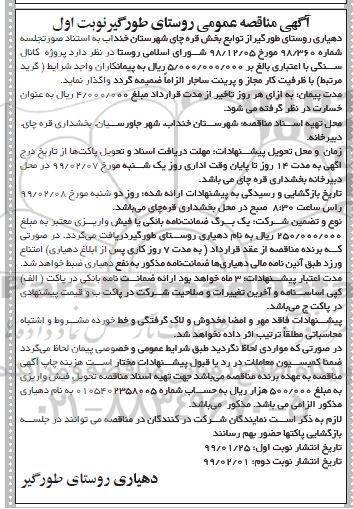 آگهی مناقصه عمومی روستای طورگیر نوبت اول
دهیاری روستای طورگیر از توابع بخش قره چای شهرستان خنداب به استناد صورتجلسه
شماره ۹۸/۳۶۰ مورخ ۹۸/۱۲/۰۵ شورای اسلامی روستا در نظر دارد پروژه کانال
سنگی با اعتباری بالغ بر ۵/۰۰۰/۰۰۰/۰۰۰ ریال به پیمانکاران واجد شرایط ( گرید
مرتبط) با ظرفیت کار مجاز و پرینت ساجار الزاماً ضمیمه گردد واگذار نماید.
مدت پیمان: به ازای هر روز تاخیر از مدت قرارداد مبلغ ۴/۰۰۰/۰۰۰ ریال به عنوان
خسارت در نظر گرفته می شود.
محل تهیه اسناد مناقصه: شهرستان خنداب، شهر جاورسیان، بخشداری قره چای،
دبیرخانه
زمان و محل تحویل پیشنهادات: مهلت دریافت اسناد و تحویل پاکت‌ها از تاریخ درج
آگهی به مدت ۱۴ روز تا پایان وقت اداری روز یک شنبه مورخ ۹۹/۰۲/۰۷ در محل
دبیرخانه بخشداری قره چای می باشد.
تاریخ بازگشایی و رسیدگی به پیشنهادات ارائه شده: روز دو شنبه مورخ ۹۹/۰۲/۰۸
راس ساعت ۸:۳۰ صبح در محل بخشداری قره‌چای می‌باشد.
نوع و تضمین شرکت: یک برگ ضمانت‌نامه بانکی یا فیش واریزی معتبر به مبلغ
۲۵۰/۰۰۰/۰۰۰ ریال به نام دهیاری روستای طورگیر دریافت می‌گردد. در صورتی
که برنده مناقصه از عقد قرارداد ( به مدت ۷ روز کاری پس از ابلاغ دهیاری) امتناع
ورزد طبق آئین نامه مالی دهیاری‌ها ضمانت‌نامه مذکور به نفع دهیاری ضبط خواهد شد.
مدت اعتبار پیشنهادات ۳ ماه خواهد بود ارائه ضمانت نامه بانکی در پاکت ( الف)
کپی اساسنامه و آخرین تغییرات و صلاحیت شرکت در پاکت ب و قیمت پیشنهادی
در پاکت ج می‌باشد.
پیشنهادات فاقد مهر و امضا مخدوش و لاک گرفتگی و خط خورده مشروط و اشتباه
محاسباتی مطلقاً ترتیب اثر داده نخواهد شد.
در صورتی که مواردی لحاظ نگردید طبق شرایط عمومی و خصوصی پیمان لحاظ می‌گردد
ضمناً کمیسیون معاملات در رد یا قبول پیشنهادات مختار است هزینه چاپ آگهی
مناقصه به عهده برنده مناقصه می‌باشد جهت تهیه اسناد مناقصه تحویل فیش واریزی
به مبلغ ۵۰۰/۰۰۰ هزار ریال به حساب شماره ۰۱۰۵۴۰۲۳۵۸۰۰۵ به نام دهیاری
مذکور الزامی می باشد. مذکور می‌باشد.
لازم به ذکر است نمایندگان شرکت در کنندگان در مناقصه می توانند در جلسه
بازگشایی پاکتها حضور بهم رسانند
تاریخ انتشار نوبت اول: ۹۹/۰۱/۲۵
تاریخ انتشار نوبت دوم: ۹۹/۰۲/۰۱
دهیاری روستای طورگیر